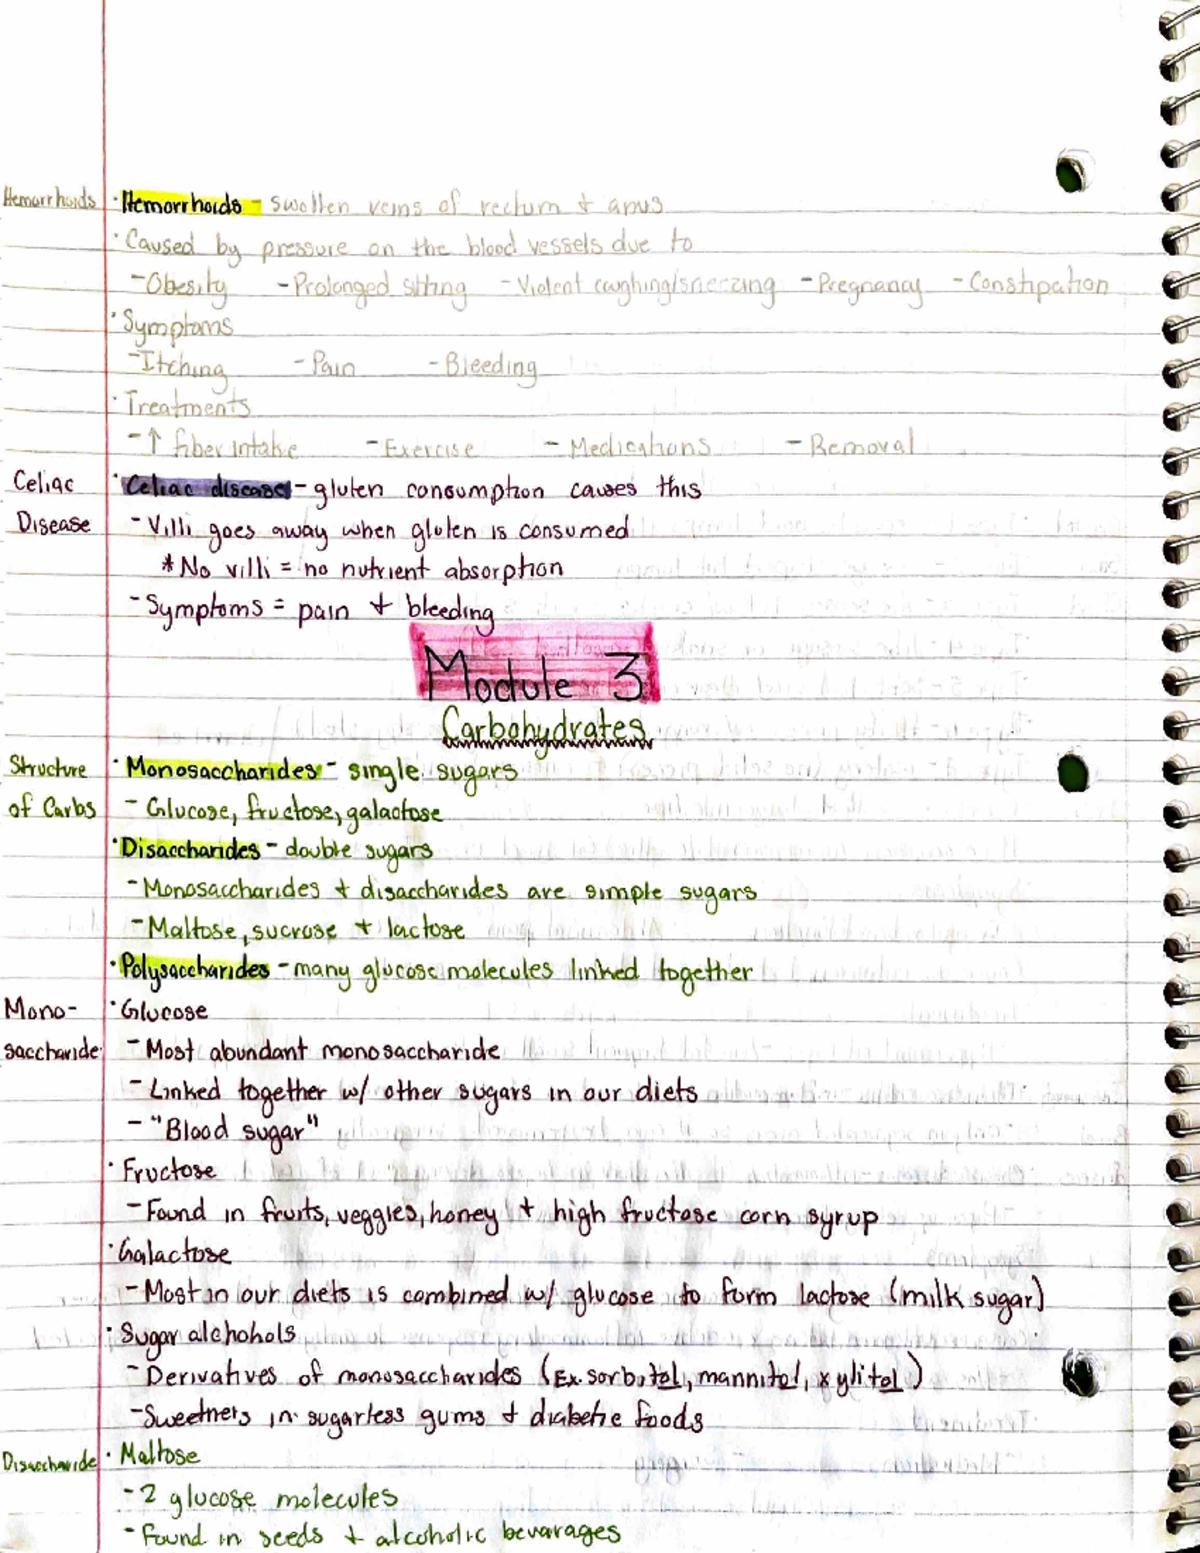 Hemorrhoids · Hemorrhoids - swollen veins of rectum + anus
· Caused by pressure on the blood vessels due to
- Obesity - Prolonged sitting - Violent coughing/sneezing - Pregnancy - Constipation
· Symptoms
- Itching - Pain - Bleeding
· Treatments
- ↑ fiber intake - Exercise - Medications - Removal
Celiac · Celiac disease - gluten consumption causes this
Disease - Villi goes away when gluten is consumed
* No villi = no nutrient absorption
- Symptoms = pain + bleeding
Module 3
Carbohydrates
Structure · Monosaccharides - single sugars
of Carbs - Glucose, fructose, galactose
· Disaccharides - double sugars
- Monosaccharides + disaccharides are simple sugars
- Maltose, sucrose + lactose
· Polysaccharides - many glucose molecules linked together
Mono- · Glucose
saccharide - Most abundant monosaccharide
- Linked together w/ other sugars in our diets
- "Blood sugar"
· Fructose
- Found in fruits, veggies, honey + high fructose corn syrup
· Galactose
- Most in our diets is combined w/ glucose to form lactose (milk sugar)
· Sugar alchohols
- Derivatives of monosaccharides (Ex. sorbitol, mannitol, xylitol)
- Sweetners in sugarless gums + diabetic foods
Disaccharide · Maltose
- 2 glucose molecules
- Found in seeds + alcoholic bevarages